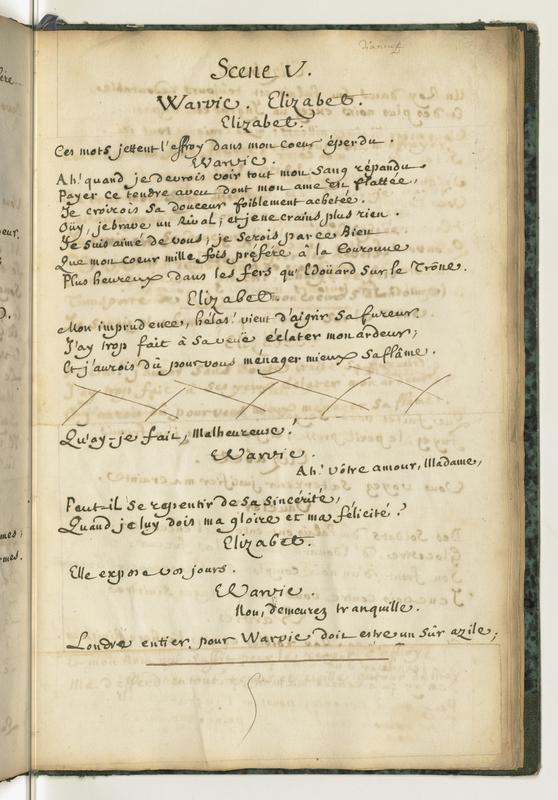 Scene V.
Warvic. Elizabet.
Elizabet.
Ces mots jettent l'effroy dans mon coeur éperdu.
Warvic.
Ah! quand je devrois voir tout mon sang répandu
Payer ce tendre aveu dont mon ame est flattée,
Je croirois sa douceur foiblement achetée.
Oüy, je brave un Rival; et je ne crains plus rien.
Je suis aimé de vous; je serois par ce Bien
Que mon coeur mille fois préfére à la Couronne
Plus heureux dans les fers qu'Edoüard sur le Trône.
Elizabet.
Mon imprudence, hélas! vient d'aigrir sa fureur
J'ay trop fait à sa veüe éclater mon ardeur;
Et j'aurois dû pour vous ménager mieux sa flâme.
Qu'ay-je fait, Malheureuse!
Warvic.
Ah! vôtre amour, Madame,
Peut-il se repentir de sa sincérité,
Quand je luy dois ma gloire et ma félicité?
Elizabet.
Elle expose vos jours.
Warvic.
Non, demeurez tranquille.
Londre entier, pour Warvic doit estre un sûr azile;